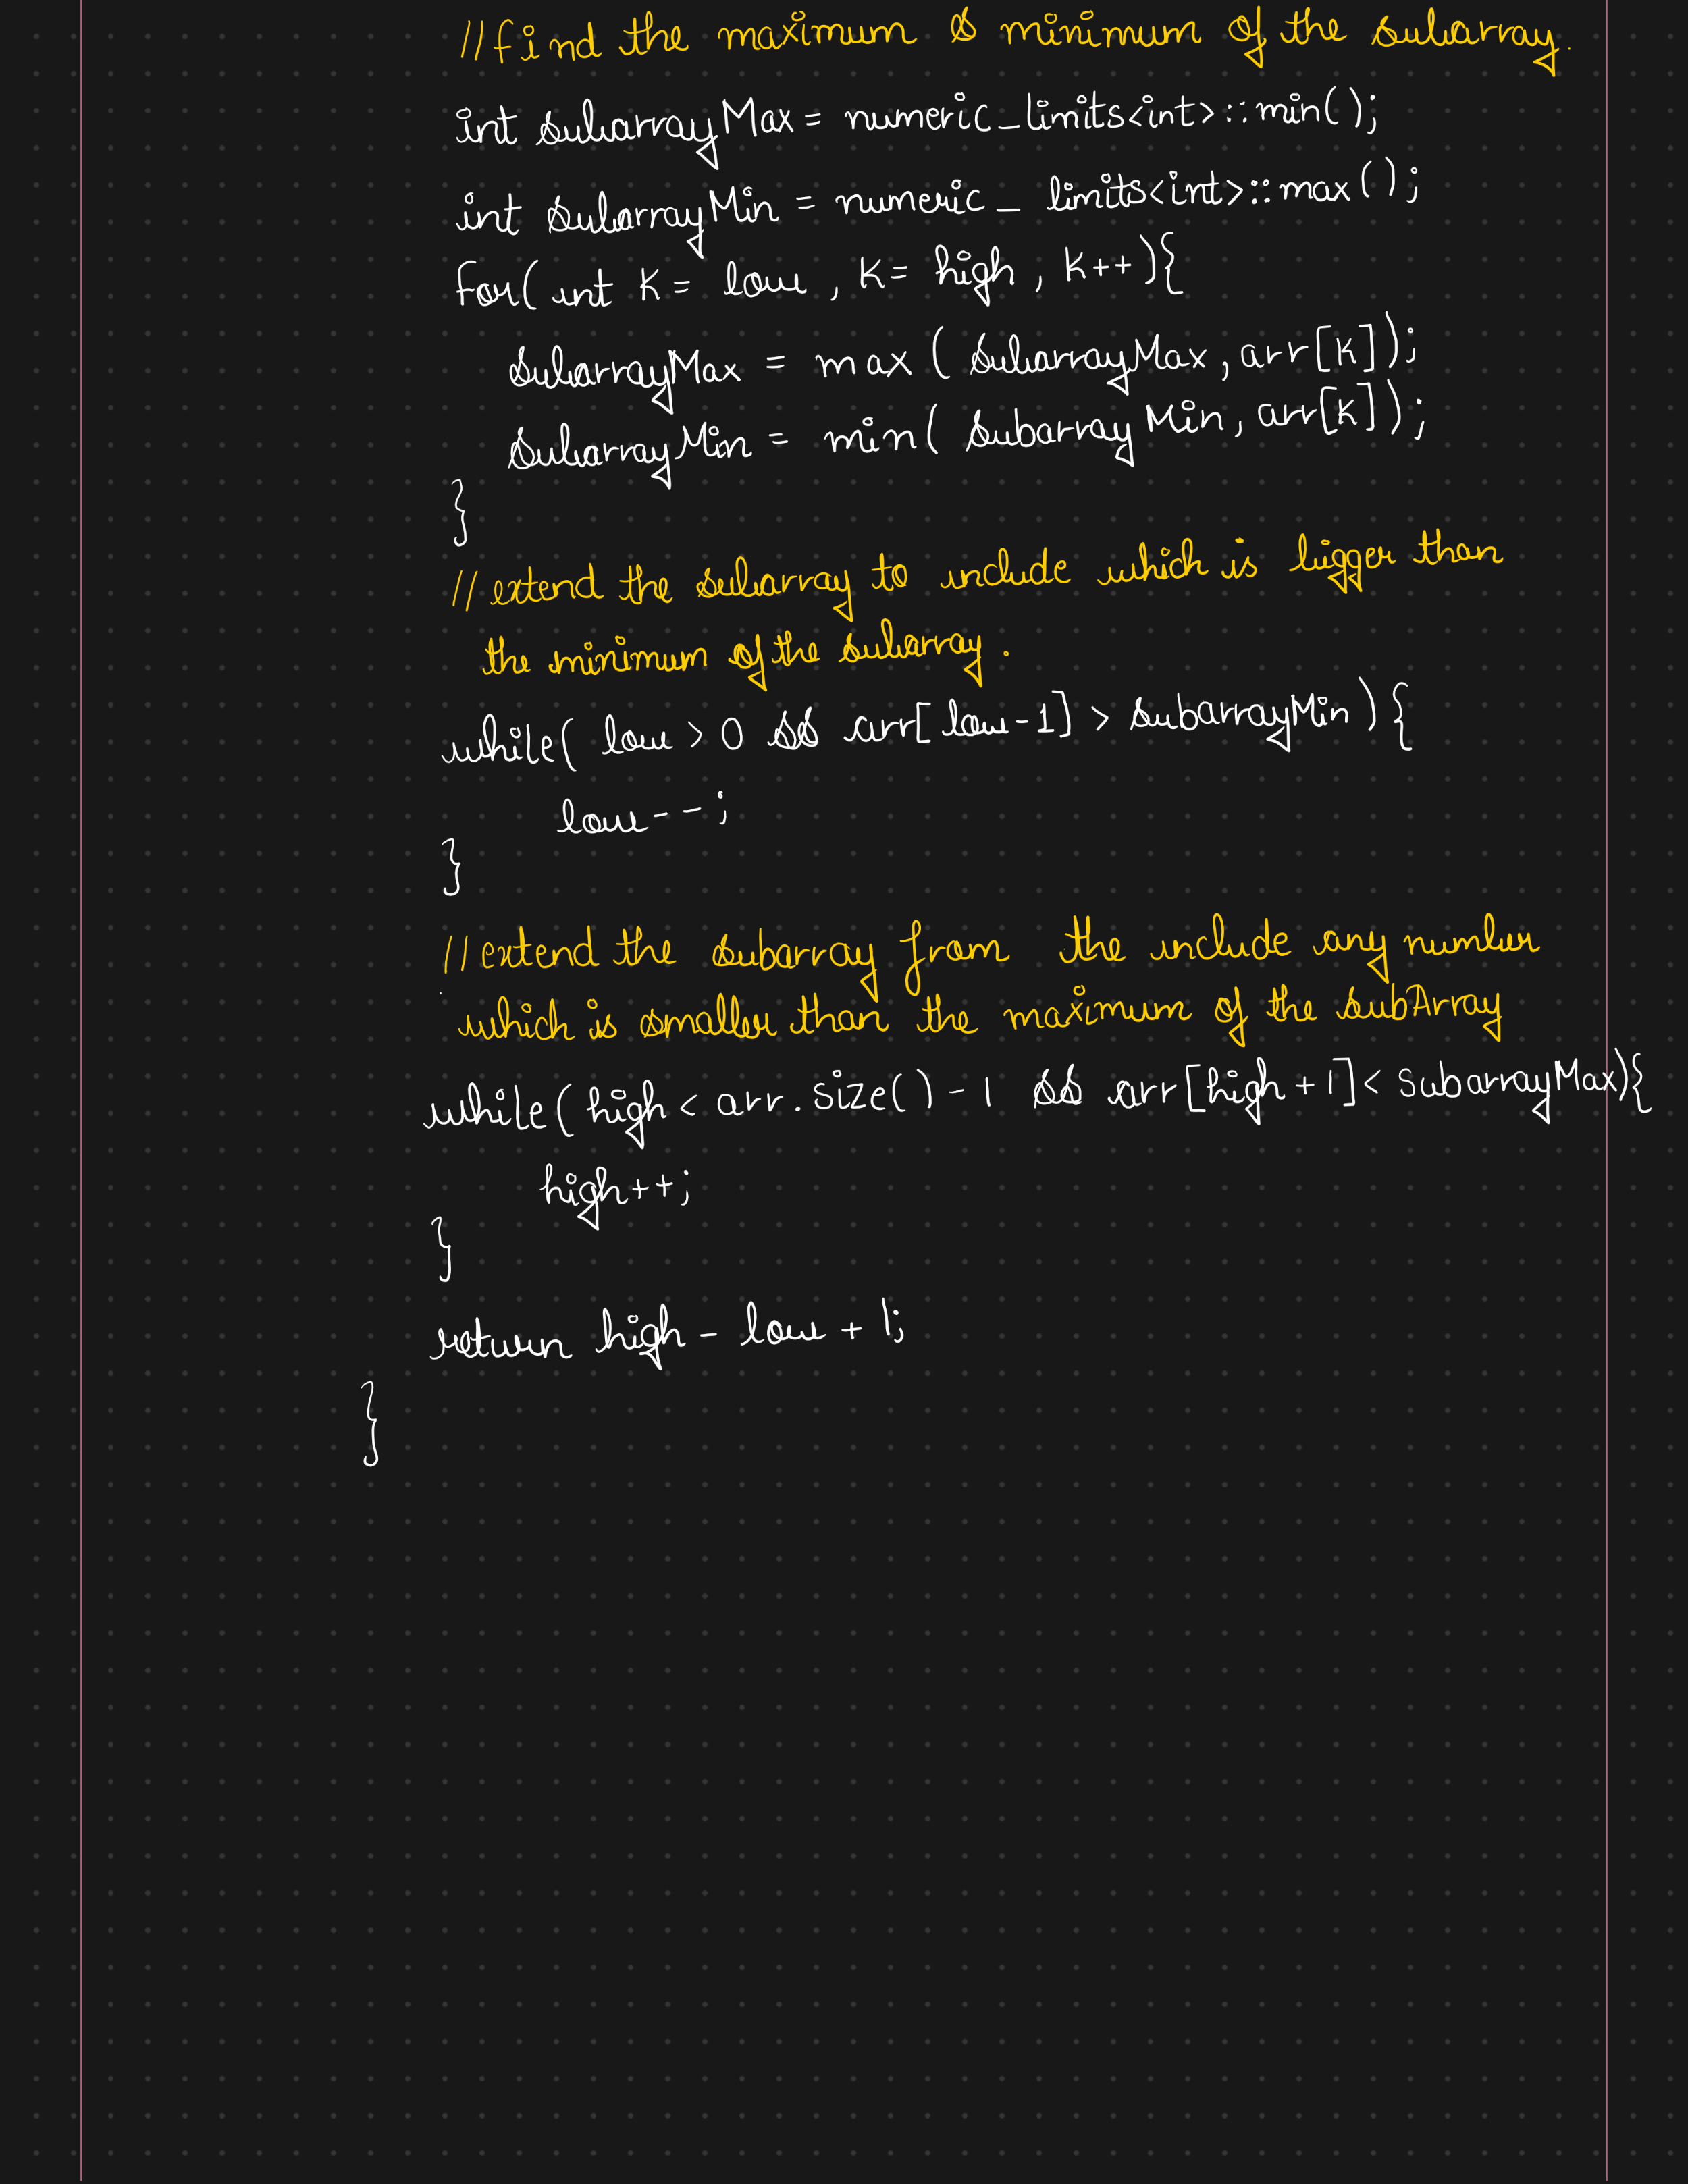 //find the maximum & minimum of the subarray.
int subarrayMax = numeric_limits<int>::min();
int subarrayMin = numeric_limits<int>::max();
for( int K = low , K = high , K++){
subarrayMax = max ( subarrayMax , arr[K]);
subarrayMin = min( subarrayMin, arr[K]);
}
// extend the subarray to include which is bigger than
the minimum of the subarray.
while( low > 0 && arr[low-1] > subarrayMin ){
low--;
}
// extend the subarray from the include any number
which is smaller than the maximum of the subArray
while( high < arr.size()-1 && arr[high+1] < SubarrayMax){
high++;
}
return high - low + 1;
}